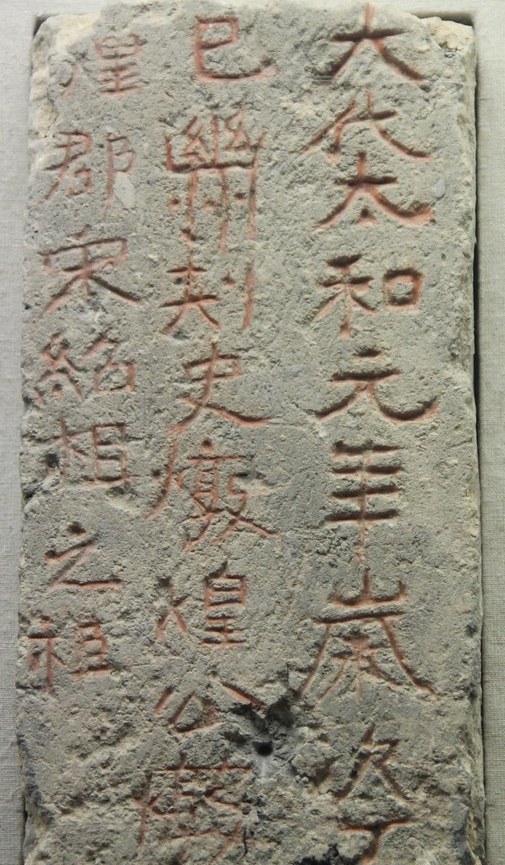 大代太和元年歲次丁
巳幽州刺史敦煌公敦
煌郡宋紹祖之柩